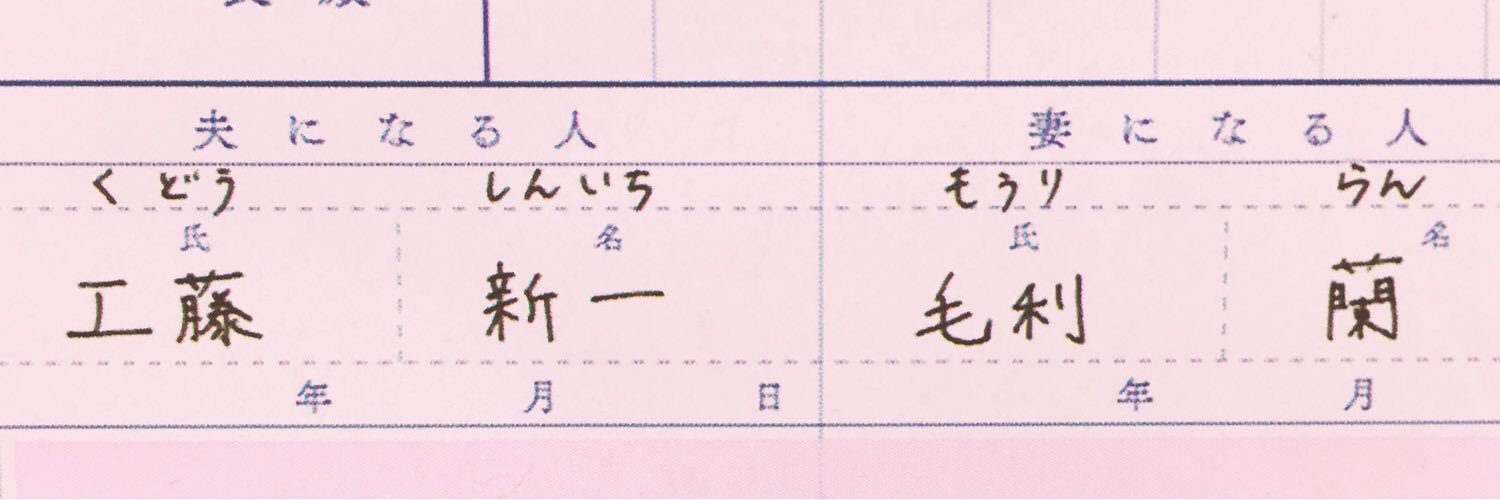 夫になる人 妻になる人
くどう しんいち もうり らん
氏 名 氏 名
工藤 新一 毛利 蘭
年 月 日 年 月